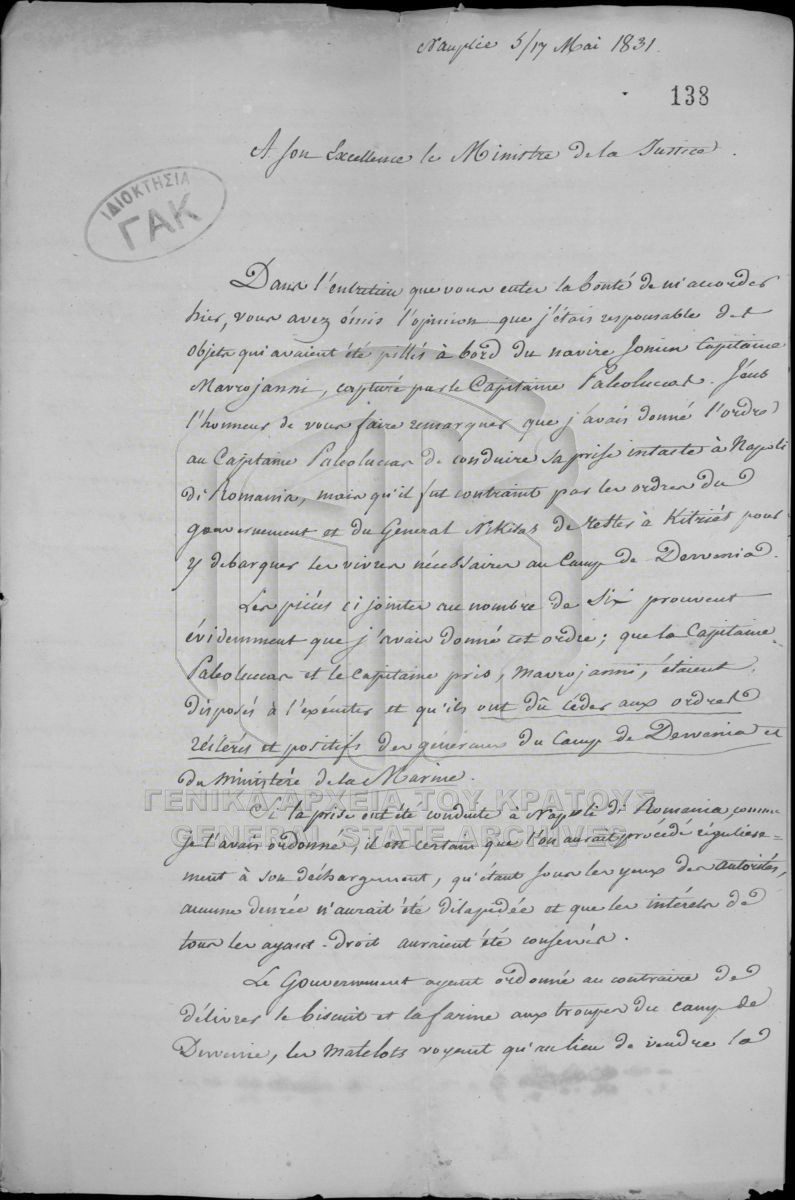 Nauplie 5/17 Mai 1831.
138
A Son Excellence le Ministre de la Justice.
ΙΔΙΟΚΤΗΣΙΑ
ΓΑΚ
Dans l'entretien que vous eutes la bonté de m'accorder
hier, vous avez émis l'opinion que j'étais responsable des
objets qui avaient été pillés à bord du navire Jonien Capitaine
Mavrojanni, capturé par le Capitaine Paleoluccas. J'eus
l'honneur de vous faire remarquer que j'avais donné l'ordre
au Capitaine Paleoluccas de conduire sa prise intacte à Napoli
di Romania, mais qu'il fut contraint par les ordres du
gouvernement et du Général Nikitas de rester à Kitriés pour
y debarquer les vivres nécessaires au Camp de Dervenia.
Les piéces ci jointes au nombre de Six prouvent
évidemment que j'avais donné cet ordre; que le Capitaine
Paleoluccas et le Capitaine pris, Mavrojanni, étaient
disposés à l'exécuter et qu'ils ont dû céder aux ordres
réitérés et positifs des généraux du Camp de Dervenia et
du Ministère de la Marine.
ΓΕΝΙΚΑ ΑΡΧΕΙΑ ΤΟΥ ΚΡΑΤΟΥΣ
GENERAL STATE ARCHIVES
Si la prise eut été conduite à Napoli di Romania, comme
je l'avais ordonné, il est certain que l'on aurait procédé régulière=
ment à son déchargement, qu'étant sous les yeux des autorités,
aucune denrée n'aurait été dilapidée et que les intérets de
tous les ayant-droit auraient été conservés.
Le Gouvernement ayant ordonné au contraire de
délivrer le biscuit et la farine aux troupes du camp de
Dervenie, les matelots voyant qu'au lieu de vendre la